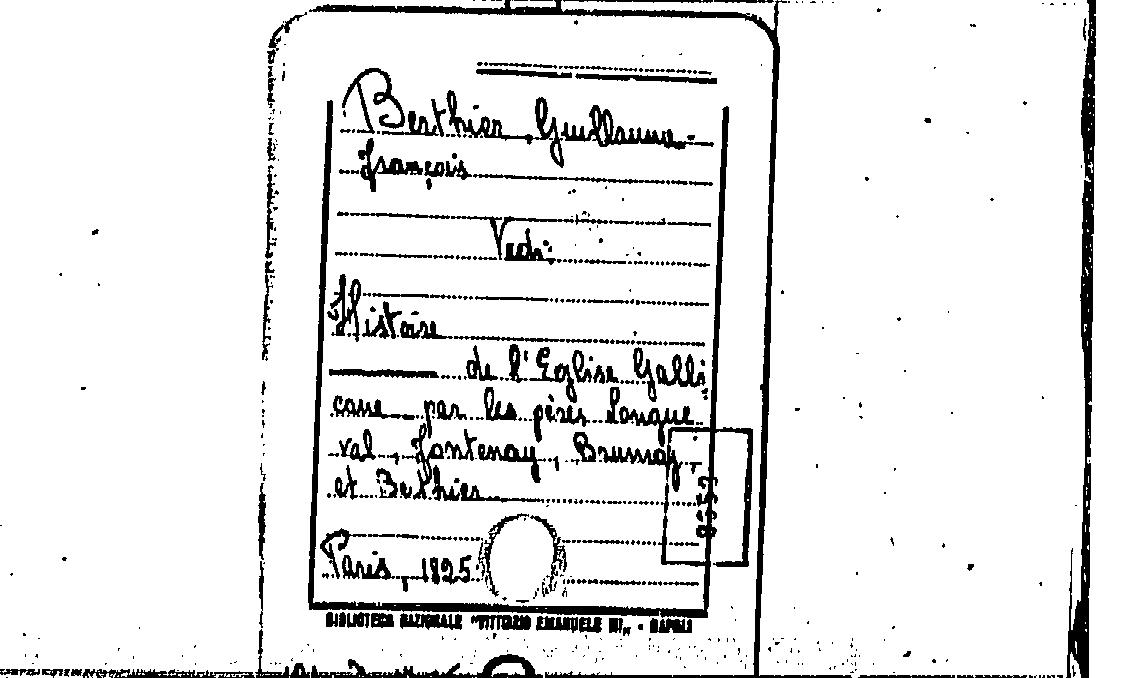 Berthier, Guillaume-
François
Vedi:
Histoire
de l'Eglise Galli
cane par les pères Longue
val, Fontenay, Brumoy,
et Berthier
Paris, 1825
BIBLIOTECA NAZIONALE "VITTORIO EMANUELE III" - NAPOLI